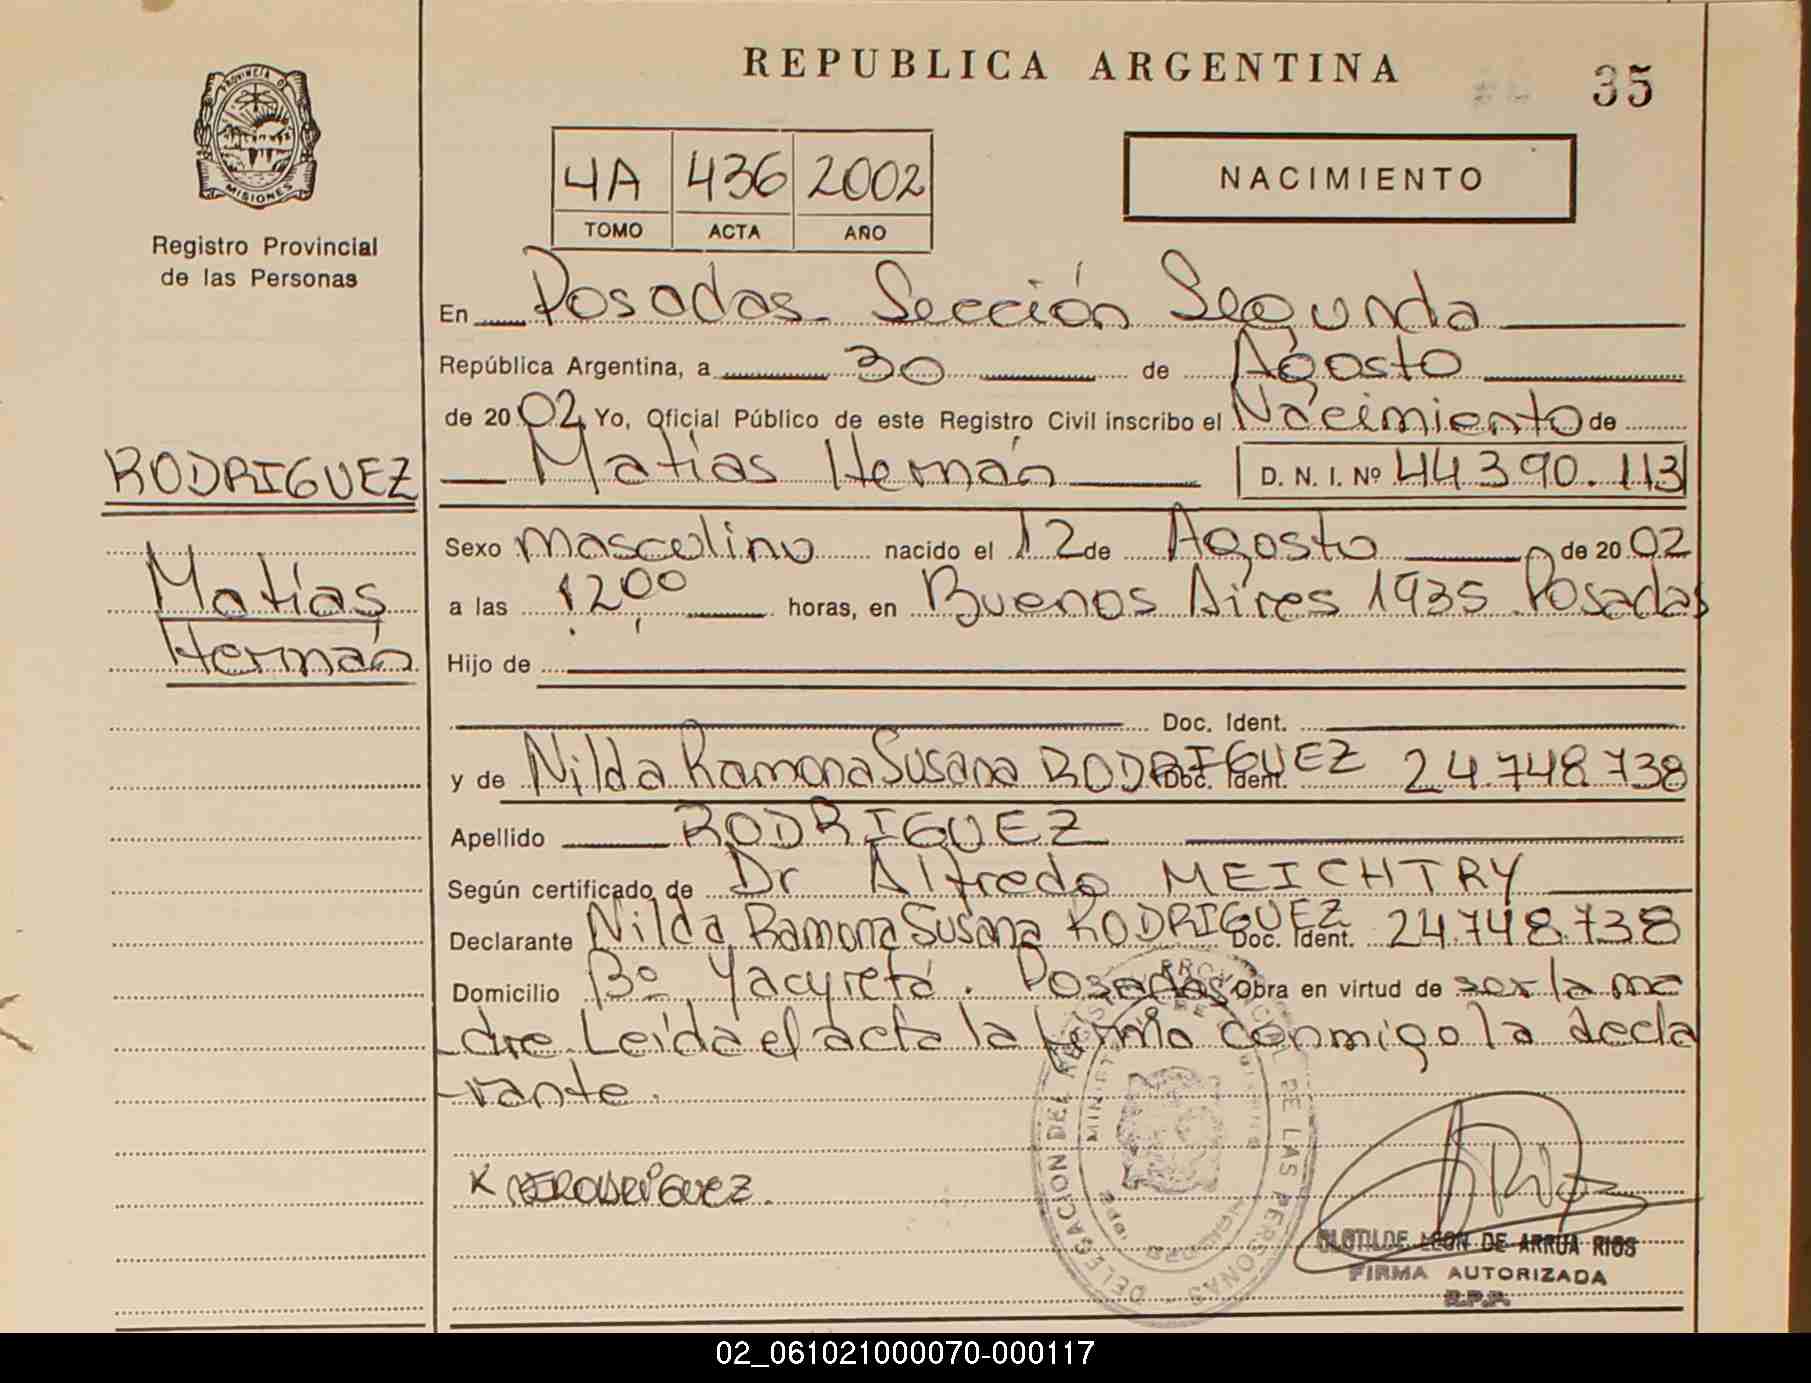 REPUBLICA ARGENTINA
35
PROVINCIA DE
MISIONES
Registro Provincial
de las Personas
4A 436 2002
TOMO ACTA AÑO
NACIMIENTO
En Posadas Sección Segunda
República Argentina, a 30 de Agosto
de 2002 Yo, Oficial Público de este Registro Civil inscribo el Nacimiento de
Matías Hernán D. N. I. Nº 44390.113
RODRIGUEZ
Matías
Hernán
Sexo masculino nacido el 12 de Agosto de 2002
a las 12 00 horas, en Buenos Aires 1935 Posadas
Hijo de
Doc. Ident.
y de Nilda Ramona Susana RODRIGUEZ Doc. Ident. 24.748.738
Apellido RODRIGUEZ
Según certificado de Dr Alfredo MEICHTRY
Declarante Nilda Ramona Susana RODRIGUEZ Doc. Ident. 24.748.738
Domicilio Bº Yacyretá. Posadas Obra en virtud de ser la ma
dre. Leída el acta la firma conmigo la decla
rante.
DELEGACION DEL REGISTRO PROVINCIAL DE LAS PERSONAS
CLOTILDE LEON DE ARRUA RIOS
FIRMA AUTORIZADA
R.P.P.
02_061021000070-000117